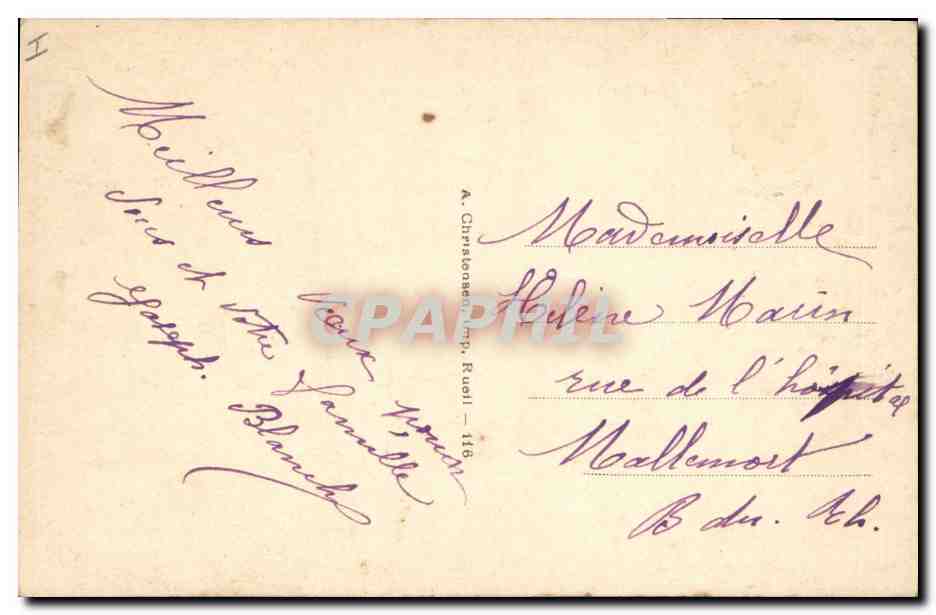 I
Meilleurs vœux pour
vous et votre famille
Joseph. Blanche
A. Christensen, Imp. Rueil — 116
CPAPHIL
Mademoiselle
Hélène Marin
rue de l'hôpital
Mallemort
B du. Rh.